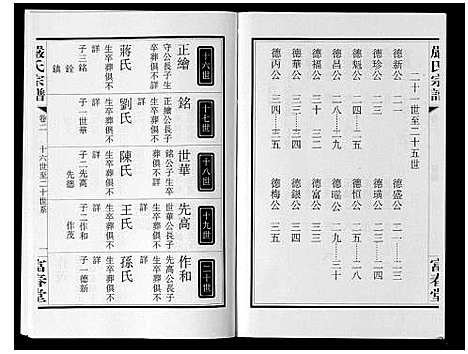 嚴氏宗譜
富春堂
二十一世至二十五世
德新公 一
德珍公 二—八
德魁公
德昌公
德福公
德華公 三四
德丙公 三四—三五
德盛公 一—三
德璜公
德恒公
德富公 三四
德銀公 三四
德梅公 三五
十六世
正繪 守公長子生
卒葬俱不
詳
蔣氏 生卒葬俱不
詳
子三銘
銓
鎮
十七世
銘 正繪公長子
生卒葬俱不
詳
劉氏 生卒葬俱不
詳
子一世華
十八世
世華 銘公子生卒
葬俱不詳
陳氏 生卒葬俱不
詳
子二先高
先德
十九世
先高 世華公長子
生卒葬俱不
詳
王氏 生卒葬俱不
詳
子二作和
作茂
二十世
作和 先高公長子
生卒葬俱不
詳
孫氏 生卒葬俱不
詳
子一德新
嚴氏宗譜 卷二 十六世至二十世系 富春堂